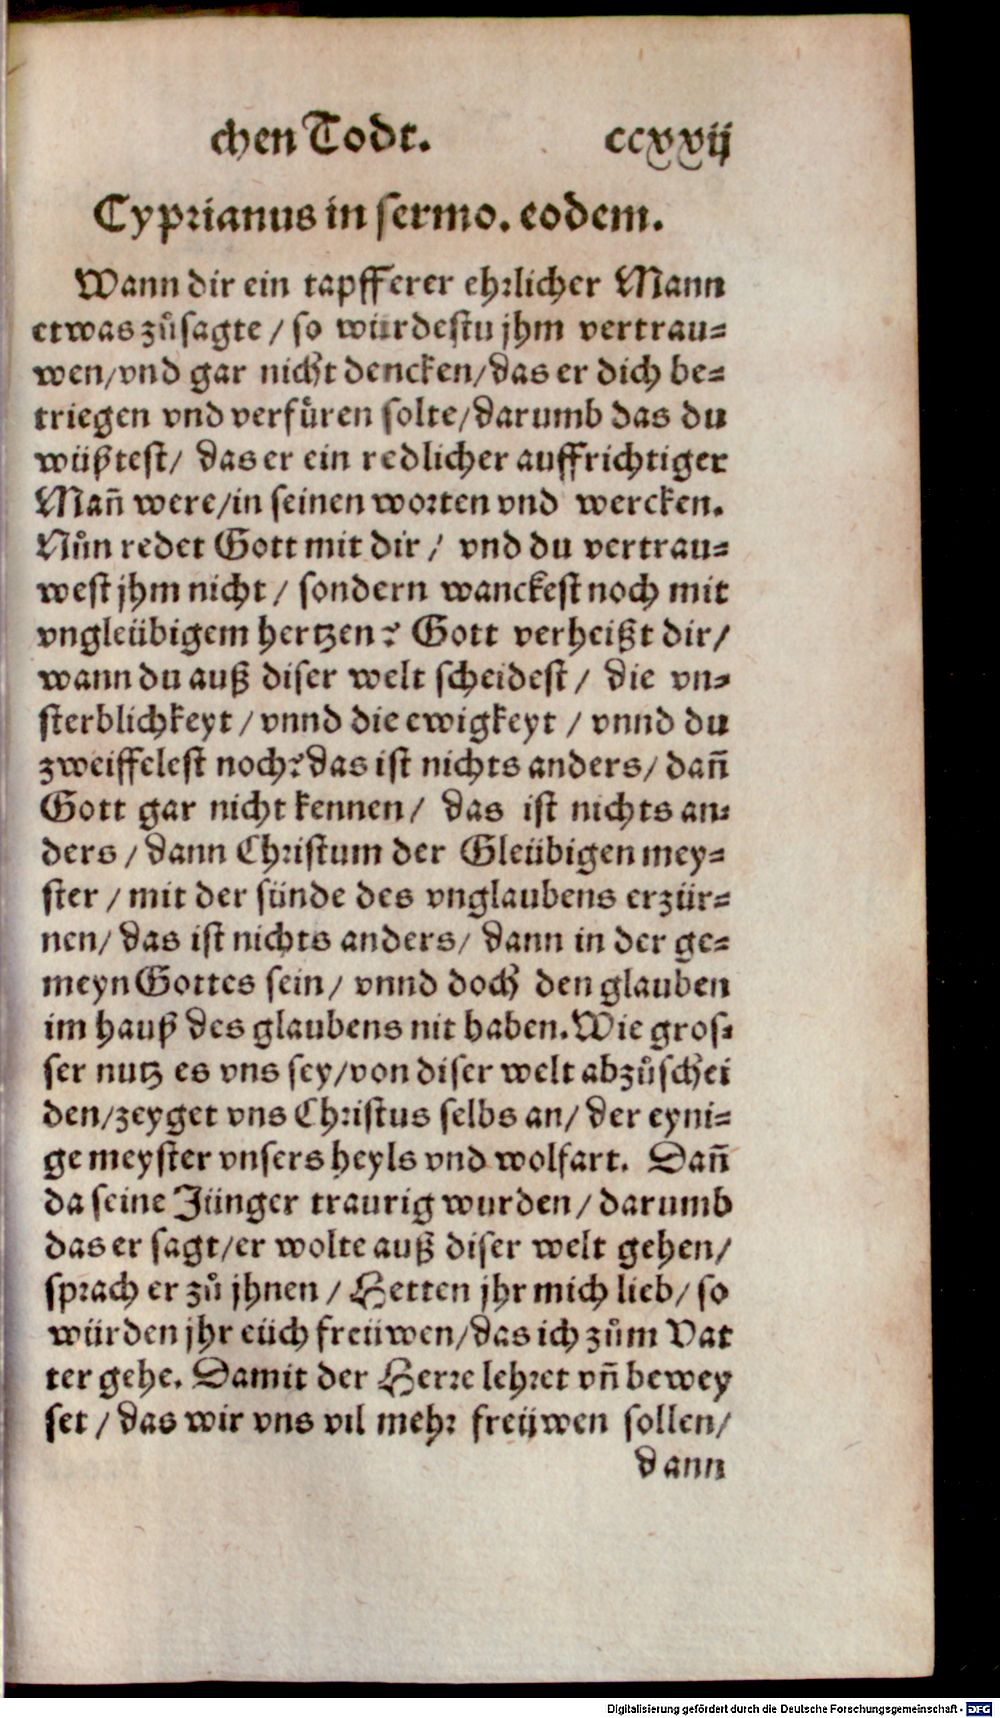 chen Todt. ccxxvij
Cyprianus in sermo. eodem.
Wann dir ein tapfferer ehrlicher Mann
etwas zůsagte / so würdestu jhm vertrau-
wen/vnd gar nicht dencken/das er dich be-
triegen vnd verfüren solte/darumb das du
wüßtest/ das er ein redlicher auffrichtiger
Mañ were/in seinen worten vnd wercken.
Nůn redet Gott mit dir / vnd du vertrau-
west jhm nicht / sondern wanckest noch mit
vngleübigem hertzen? Gott verheißt dir/
wann du auß diser welt scheidest / die vn-
sterblichkeyt / vnnd die ewigkeyt / vnnd du
zweiffelest noch? das ist nichts anders/ dañ
Gott gar nicht kennen/ das ist nichts an-
ders / dann Christum der Gleübigen mey-
ster / mit der sünde des vnglaubens erzür-
nen/ das ist nichts anders/ dann in der ge-
meyn Gottes sein/ vnnd doch den glauben
im hauß des glaubens nit haben. Wie gros-
ser nutz es vns sey/von diser welt abzůschei
den/zeyget vns Christus selbs an/ der eyni-
ge meyster vnsers heyls vnd wolfart. Dañ
da seine Jünger traurig wurden / darumb
das er sagt/er wolte auß diser welt gehen/
sprach er zů jhnen / Hetten jhr mich lieb/ so
würden jhr eüch freüwen/das ich zům Vat
ter gehe. Damit der Herre lehret vñ bewey
set / das wir vns vil mehr freüwen sollen/
dann
Digitalisierung gefördert durch die Deutsche Forschungsgemeinschaft - DFG